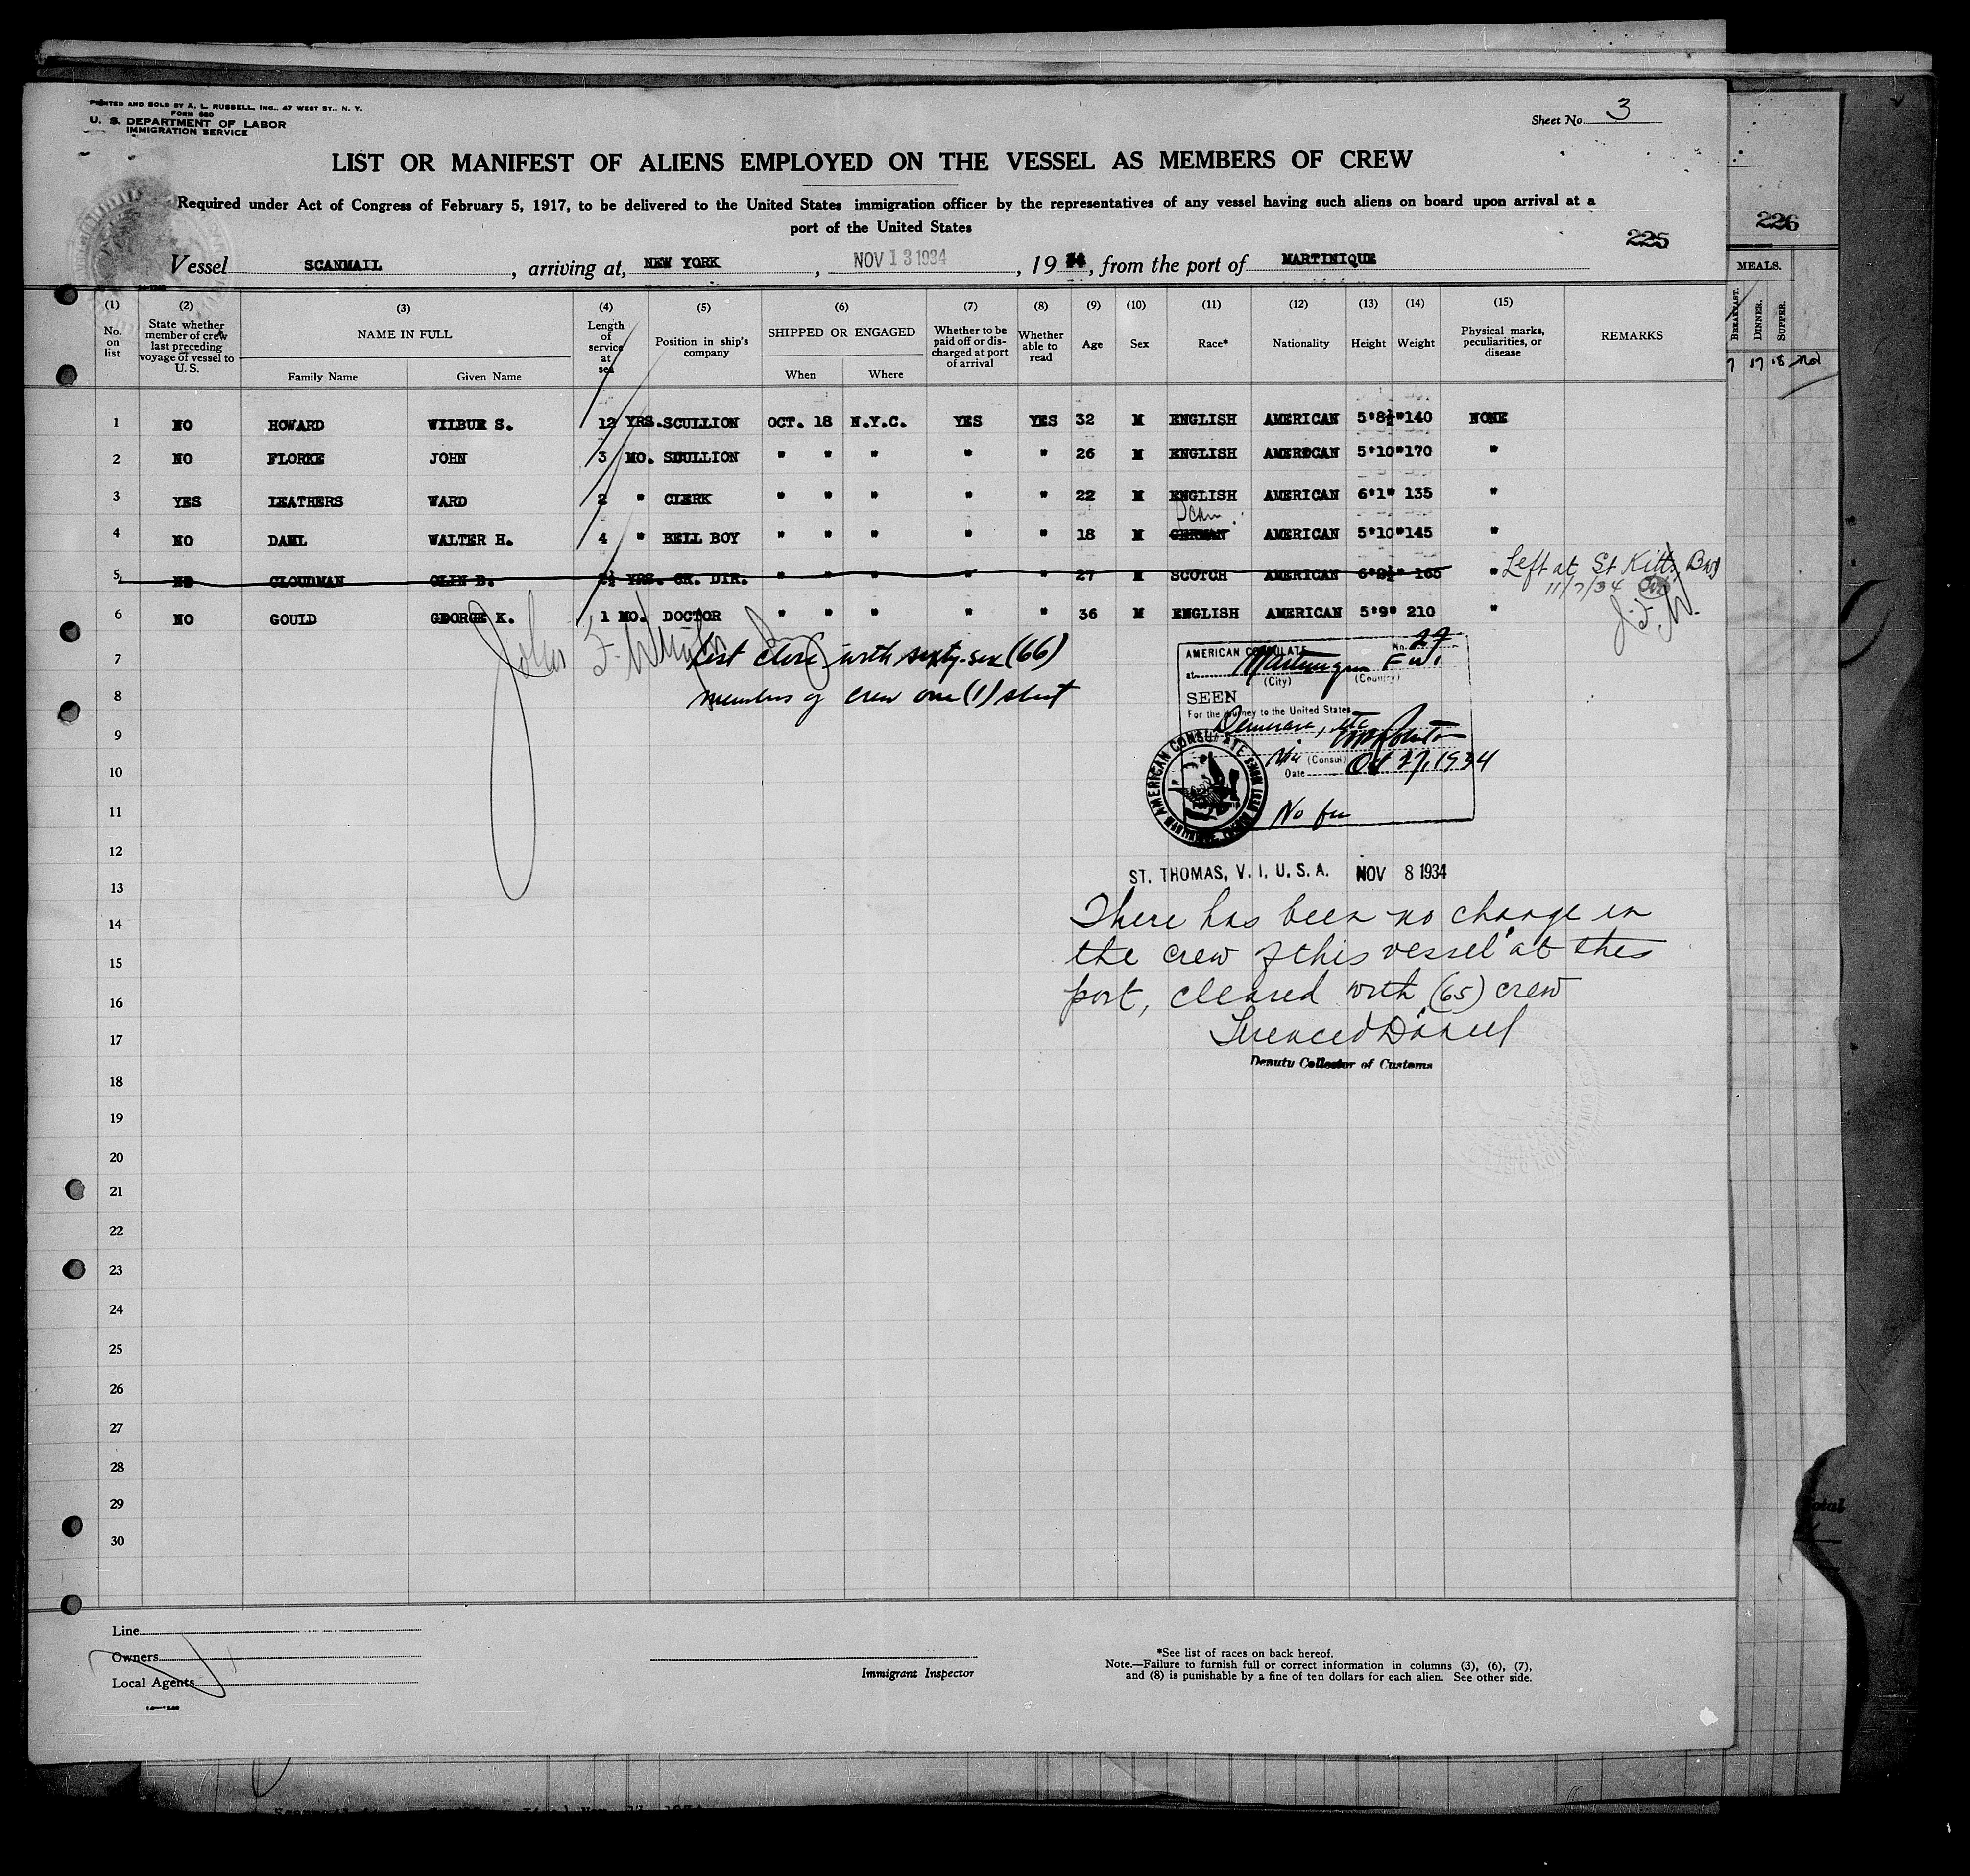 PRINTED AND SOLD BY A. L. RUSSELL, INC., 47 WEST ST., N. Y.
FORM 680
U. S. DEPARTMENT OF LABOR
IMMIGRATION SERVICE
Sheet No. 3
LIST OR MANIFEST OF ALIENS EMPLOYED ON THE VESSEL AS MEMBERS OF CREW
Required under Act of Congress of February 5, 1917, to be delivered to the United States immigration officer by the representatives of any vessel having such aliens on board upon arrival at a
port of the United States
225
226
Vessel SCANMAIL, arriving at, NEW YORK, NOV 13 1934, 1934, from the port of MARTINIQUE
MEALS.
BREAKFAST. DINNER. SUPPER.
17 18
(1) (2) (3) (4) (5) (6) (7) (8) (9) (10) (11) (12) (13) (14) (15)
No. on list
State whether member of crew last preceding voyage of vessel to U. S.
NAME IN FULL
Family Name Given Name
Length of service at sea
Position in ship's company
SHIPPED OR ENGAGED
When Where
Whether to be paid off or discharged at port of arrival
Whether able to read
Age
Sex
Race*
Nationality
Height
Weight
Physical marks, peculiarities, or disease
REMARKS
1 NO HOWARD WILBUR S. 12 YRS. SCULLION OCT. 18 N.Y.C. YES YES 32 M ENGLISH AMERICAN 5'8½" 140 NONE
2 NO FLORKE JOHN 3 MO. SCULLION " " " " " 26 M ENGLISH AMERICAN 5'10" 170 "
3 YES LEATHERS WARD 2 " CLERK " " " " " 22 M ENGLISH AMERICAN 6'1" 135 "
Scan.
4 NO DAHL WALTER H. 4 " BELL BOY " " " " " 18 M GERMAN AMERICAN 5'10" 145 "
5 NO CLOUDMAN OLIN D. 2½ YRS. CR. DIR. " " " " " 27 M SCOTCH AMERICAN 165 " Left at St Kitts, BWI
11/7/34
J.F.W.
6 NO GOULD GEORGE K. 1 MO. DOCTOR " " " " " 36 M ENGLISH AMERICAN 5'9" 210 "
7
List close with sixty-six (66)
8
members of crew one (1) sheet
AMERICAN CONSULATE No. 27
at Martinique F.W.I
(City) (Country)
SEEN
For the journey to the United States
Demerara, etc
Via
(Consul)
Date Oct 27, 1934
No fee
AMERICAN CONSULATE
9
10
11
12
13
ST. THOMAS, V. I. U. S. A. NOV 8 1934
14
There has been no change in
15
the crew of this vessel at this
16
port, cleared with (65) crew
17
Deputy Collector of Customs
18
19
20
21
22
23
24
25
26
27
28
29
30
Line
Owners
Local Agents
14—1240
Immigrant Inspector
*See list of races on back hereof.
Note.—Failure to furnish full or correct information in columns (3), (6), (7),
and (8) is punishable by a fine of ten dollars for each alien. See other side.